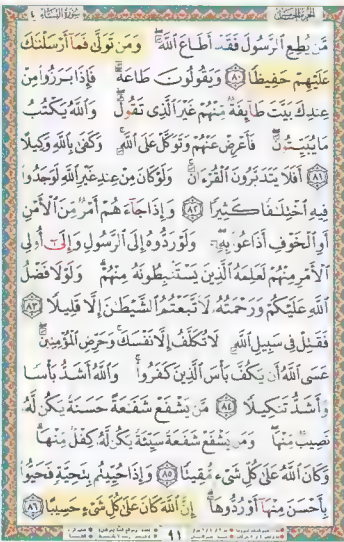 الجزء الخامس سورة النساء ٤
مَّن يُطِعِ ٱلرَّسُولَ فَقَدْ أَطَاعَ ٱللَّهَ ۖ وَمَن تَوَلَّىٰ فَمَآ أَرْسَلْنَٰكَ
عَلَيْهِمْ حَفِيظًا ﴿٨٠﴾ وَيَقُولُونَ طَاعَةٌ فَإِذَا بَرَزُوا۟ مِنْ
عِندِكَ بَيَّتَ طَآئِفَةٌ مِّنْهُمْ غَيْرَ ٱلَّذِى تَقُولُ ۖ وَٱللَّهُ يَكْتُبُ
مَا يُبَيِّتُونَ ۖ فَأَعْرِضْ عَنْهُمْ وَتَوَكَّلْ عَلَى ٱللَّهِ ۚ وَكَفَىٰ بِٱللَّهِ وَكِيلًا
﴿٨١﴾ أَفَلَا يَتَدَبَّرُونَ ٱلْقُرْءَانَ ۚ وَلَوْ كَانَ مِنْ عِندِ غَيْرِ ٱللَّهِ لَوَجَدُوا۟
فِيهِ ٱخْتِلَٰفًا كَثِيرًا ﴿٨٢﴾ وَإِذَا جَآءَهُمْ أَمْرٌ مِّنَ ٱلْأَمْنِ
أَوِ ٱلْخَوْفِ أَذَاعُوا۟ بِهِۦ ۖ وَلَوْ رَدُّوهُ إِلَى ٱلرَّسُولِ وَإِلَىٰٓ أُو۟لِى
ٱلْأَمْرِ مِنْهُمْ لَعَلِمَهُ ٱلَّذِينَ يَسْتَنۢبِطُونَهُۥ مِنْهُمْ ۗ وَلَوْلَا فَضْلُ
ٱللَّهِ عَلَيْكُمْ وَرَحْمَتُهُۥ لَٱتَّبَعْتُمُ ٱلشَّيْطَٰنَ إِلَّا قَلِيلًا ﴿٨٣﴾
فَقَٰتِلْ فِى سَبِيلِ ٱللَّهِ لَا تُكَلَّفُ إِلَّا نَفْسَكَ ۚ وَحَرِّضِ ٱلْمُؤْمِنِينَ ۖ
عَسَى ٱللَّهُ أَن يَكُفَّ بَأْسَ ٱلَّذِينَ كَفَرُوا۟ ۚ وَٱللَّهُ أَشَدُّ بَأْسًا
وَأَشَدُّ تَنكِيلًا ﴿٨٤﴾ مَّن يَشْفَعْ شَفَٰعَةً حَسَنَةً يَكُن لَّهُۥ
نَصِيبٌ مِّنْهَا ۖ وَمَن يَشْفَعْ شَفَٰعَةً سَيِّئَةً يَكُن لَّهُۥ كِفْلٌ مِّنْهَا ۗ
وَكَانَ ٱللَّهُ عَلَىٰ كُلِّ شَىْءٍ مُّقِيتًا ﴿٨٥﴾ وَإِذَا حُيِّيتُم بِتَحِيَّةٍ فَحَيُّوا۟
بِأَحْسَنَ مِنْهَآ أَوْ رُدُّوهَآ ۗ إِنَّ ٱللَّهَ كَانَ عَلَىٰ كُلِّ شَىْءٍ حَسِيبًا ﴿٨٦﴾
٩١